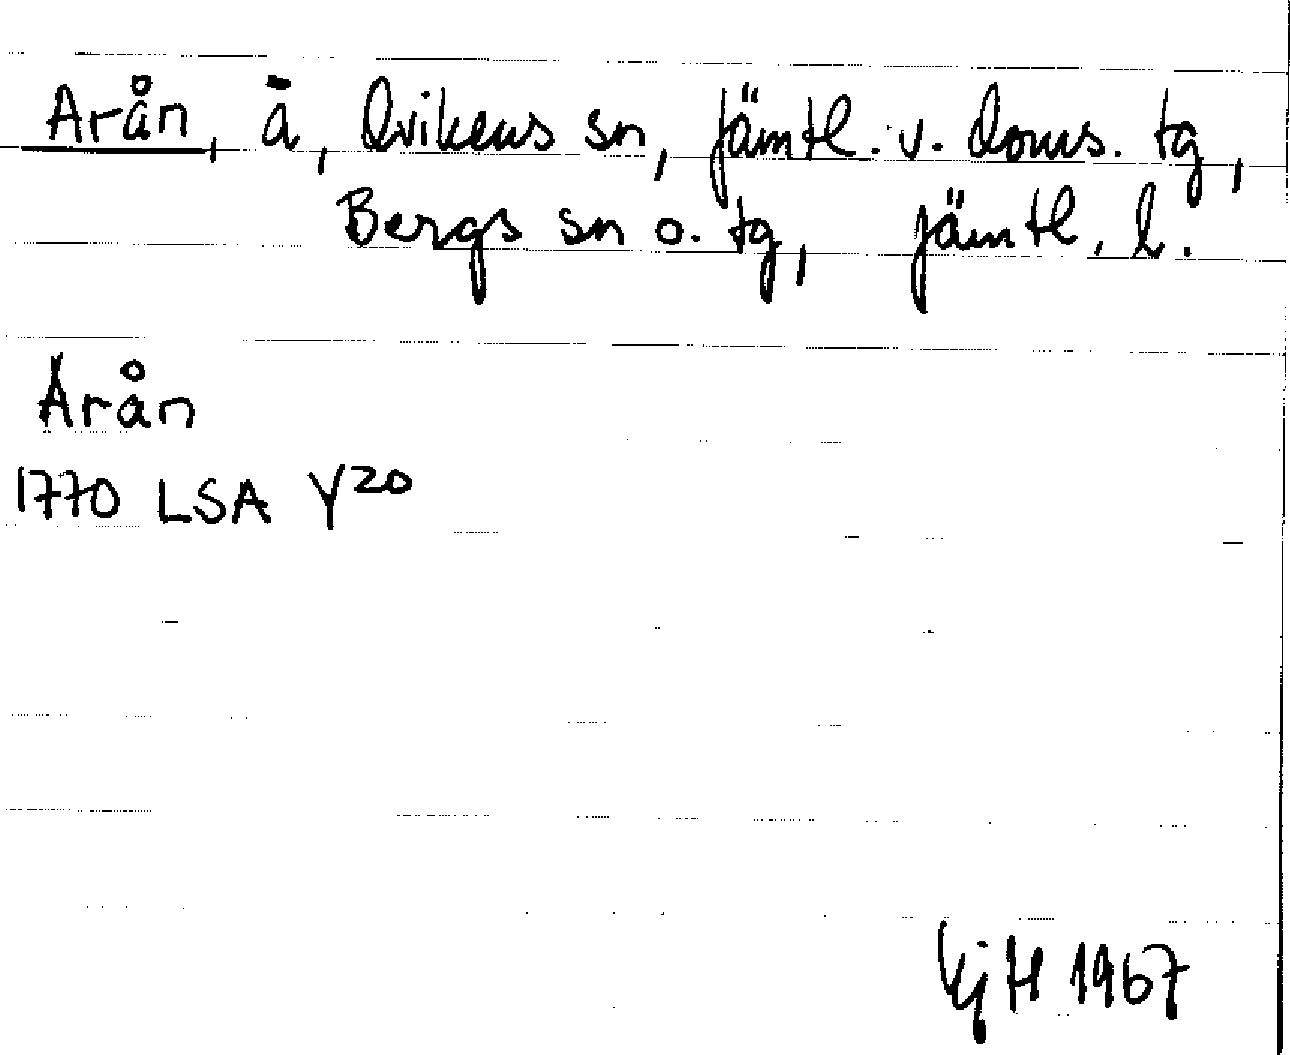 Arån, å, Ovikens sn, Jämtl. v. doms. tg,
Bergs sn o. tg, Jämtl. l.
Arån
1770 LSA Y20
KjH 1967